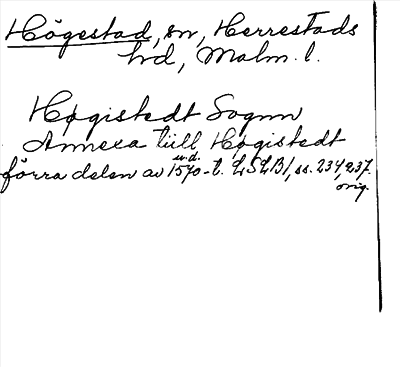 Högestad, sn, Herrestads
hd, Malm. l.
Høgistedt Sognn
Annexa tiill Høgistedt
förra delen av 1570-t. LSLB1, ss. 234, 237.
u.d.
orig.